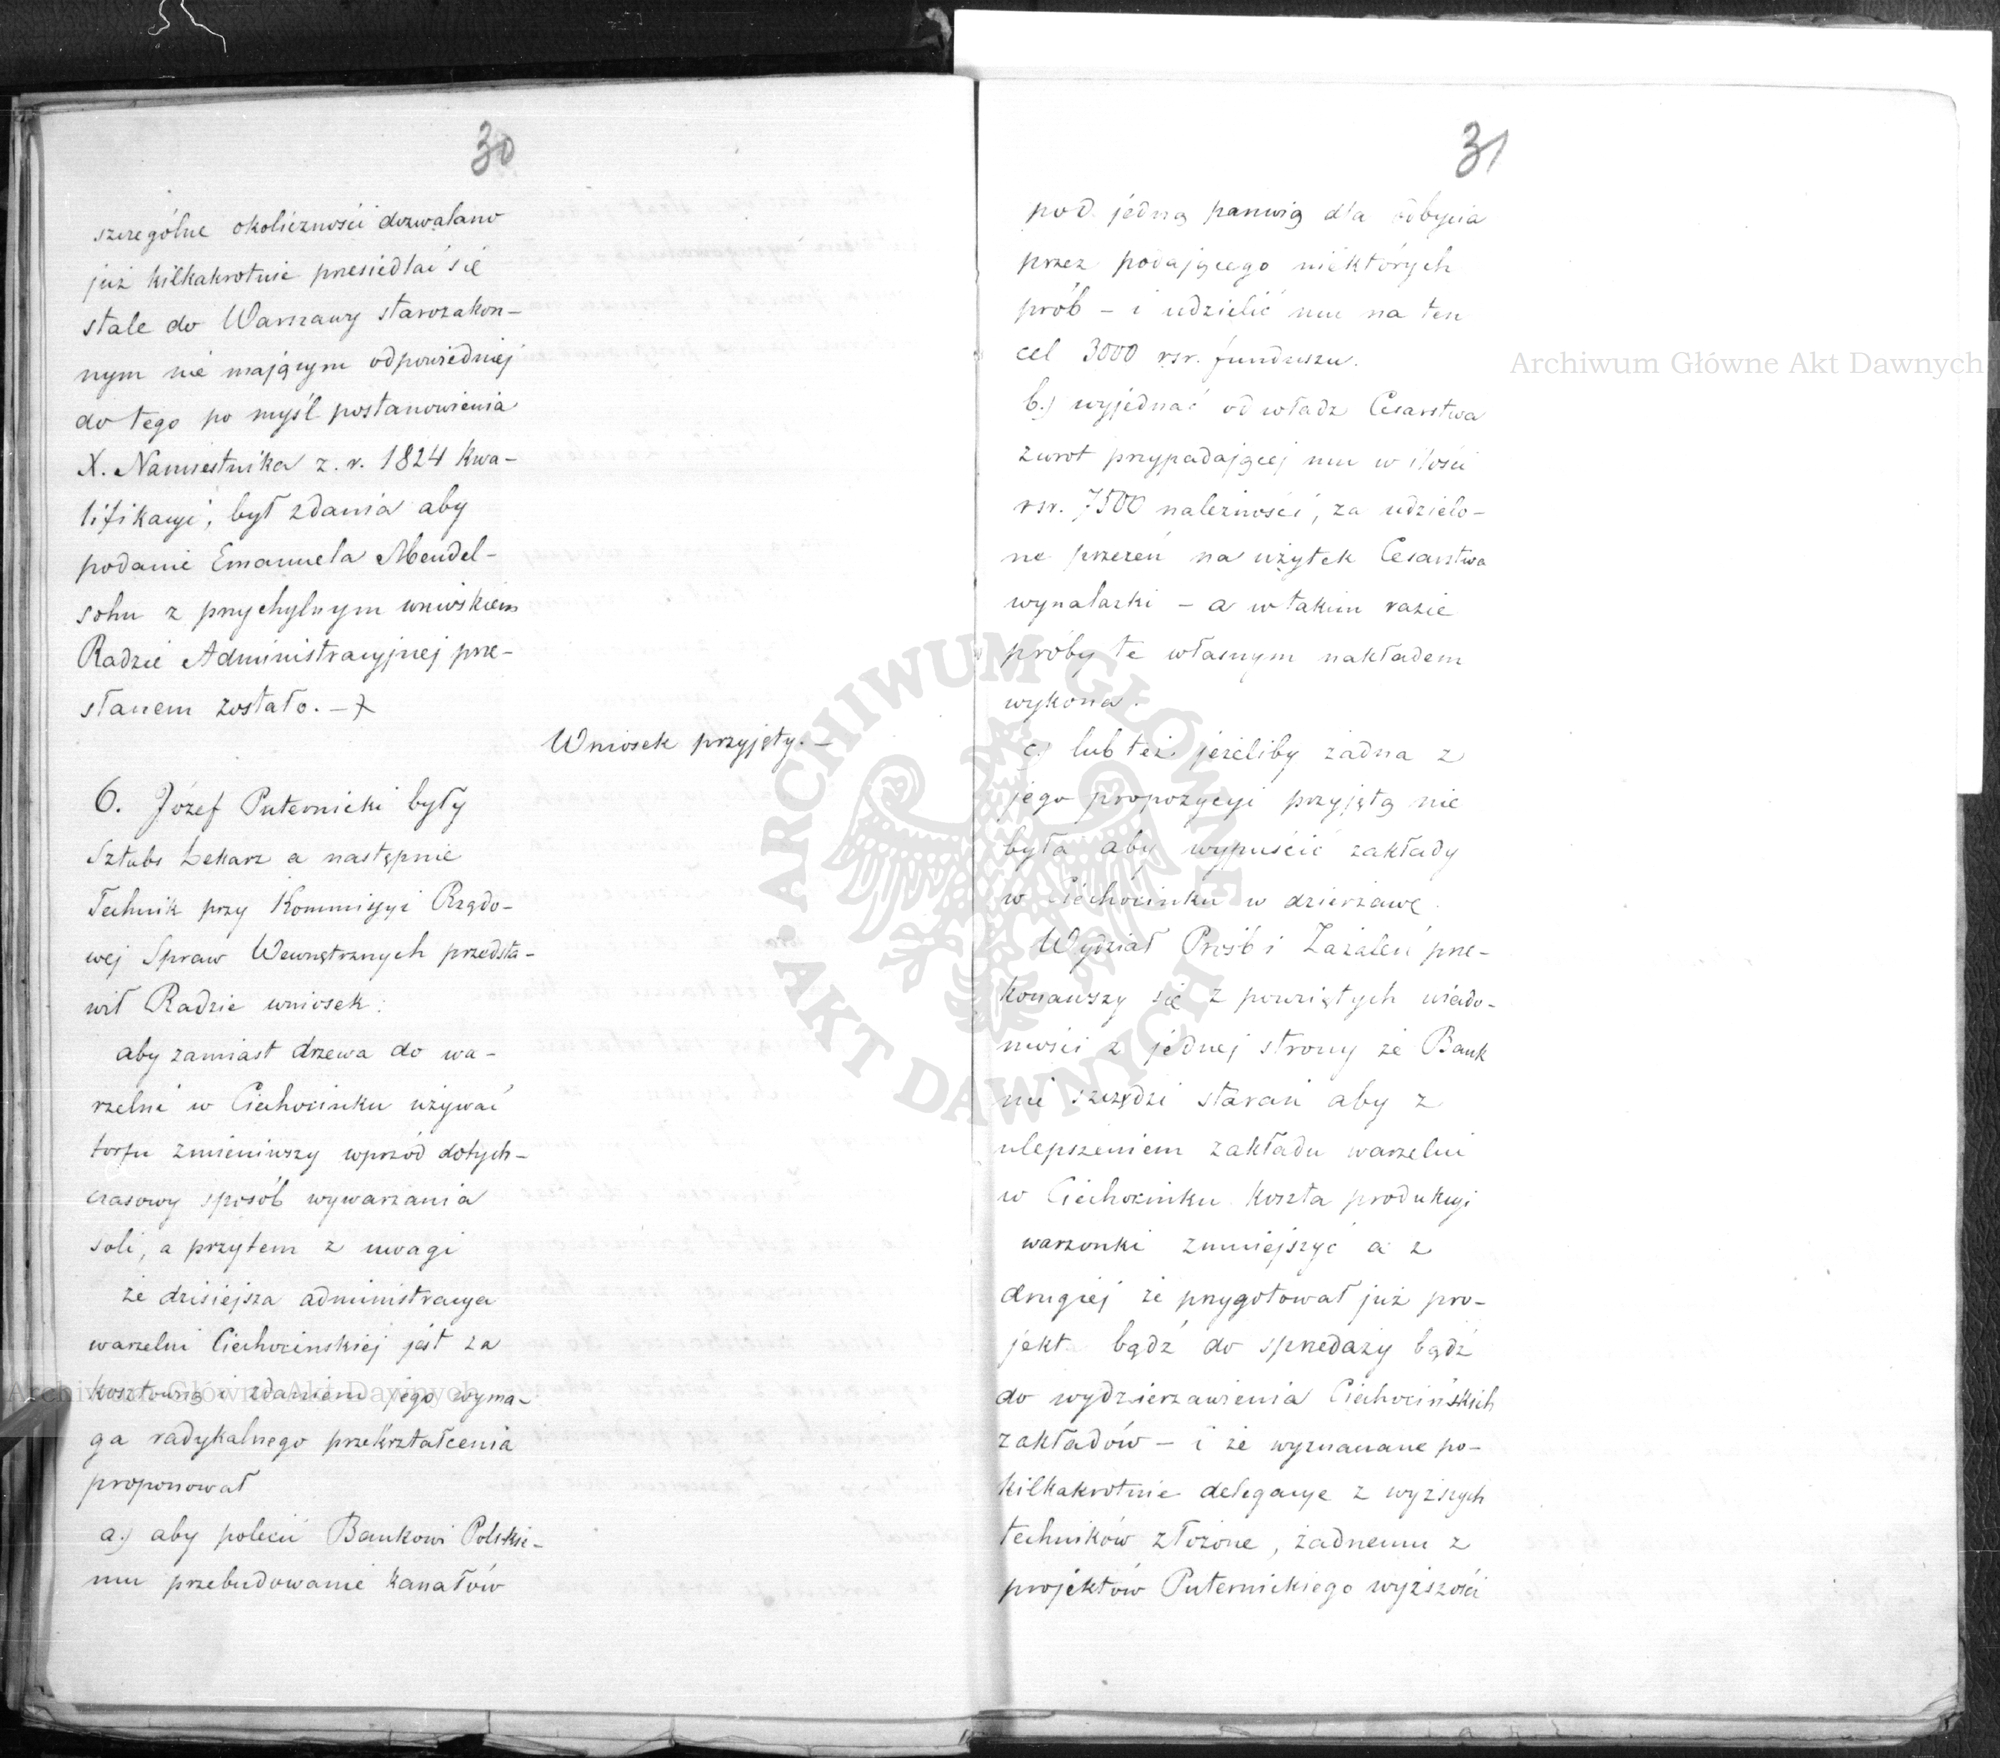 30
szczególne okoliczności dozwalano
już kilkakrotnie przesiedlać się
stale do Warszawy starozakon-
nym nie mającym odpowiedniej
do tego po myśl postanowienia
X. Namiestnika z. r. 1824 kwa-
lifikacyi, był zdania aby
podanie Emanuela Mendel-
sohn z przychylnym wnioskiem
Radzie Administracyjnej prze-
słanem zostało. —
Wniosek przyjęty. —
6. Józef Puternicki były
Sztabs Lekarz a następnie
Technik przy Kommissyi Rządo-
wej Spraw Wewnętrznych przedsta-
wił Radzie wniosek:
aby zamiast drzewa do wa-
rzelni w Ciechocinku używać
torfu zmieniwszy wprzód dotych-
czasowy sposób wywarzania
soli, a przytem z uwagi
że dzisiejsza administracya
warzelni Ciechocinskiej jest za
kosztowną i zdaniem jego wyma-
ga radykalnego przekrztałcenia
proponował
a.) aby polecić Bankowi Polskie-
mu przebudowanie kanałów
31
pod jedną panwią dla odbycia
przez podającego niektórych
prób – i udzielić mu na ten
cel 3000 rsr. funduszu.
b.) wyjednać od władz Cesarstwa
zwrot przypadającej mu w ilości
rsr. 7500 należności, za udzielo-
ne przezeń na użytek Cesarstwa
wynalazki – a w takim razie
próby te własnym nakładem
wykona.
c.) lub też jeżeliby żadna z
jego propozycyi przyjętą nie
była aby wypuścić zakłady
w Ciechocinku w dzierżawę.
Wydział Próśb i Zażaleń prze-
konawszy się z powziętych wiado-
mości z jednej strony że Bank
nie szczędzi starań aby z
ulepszeniem zakładu warzelni
w Ciechocinku koszta produkcyi
warzonki zmniejszyć a z
drugiej że przygotował już pro-
jekt bądź do sprzedaży bądź
do wydzierżawienia Ciechocińskich
zakładów – i że wyznaczane po-
kilkakrotnie delegacye z wyższych
techników złożone, żadnemu z
projektów Puternickiego wyższości
Archiwum Główne Akt Dawnych
Archiwum Główne Akt Dawnych
ARCHIWUM GŁÓWNE • AKT DAWNYCH •